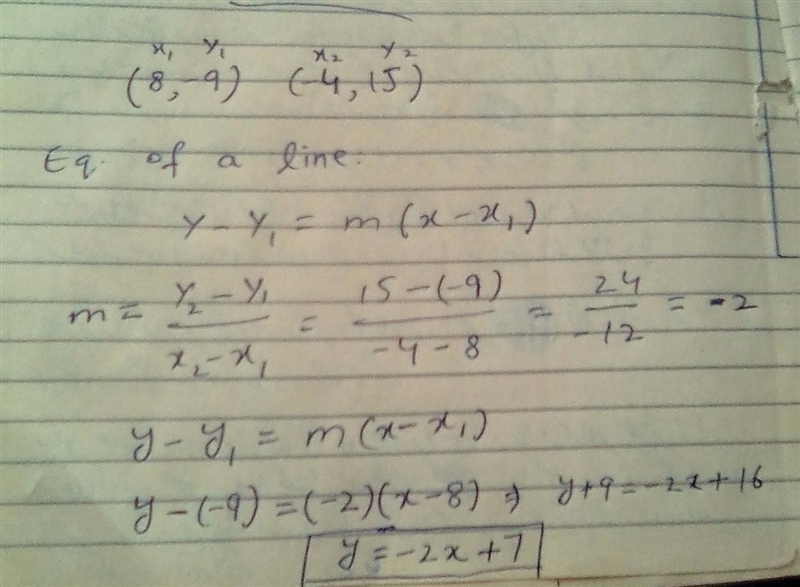 x₁ y₁ x₂ y₂
(8,-9) (-4,15)
Eq. of a line:
y - y₁ = m(x - x₁)
m = \frac{y₂ - y₁}{x₂ - x₁} = \frac{15 - (-9)}{-4 - 8} = \frac{24}{-12} = -2
y - y₁ = m(x - x₁)
y - (-9) = (-2)(x - 8) ⇒ y + 9 = -2x + 16
y = -2x + 7